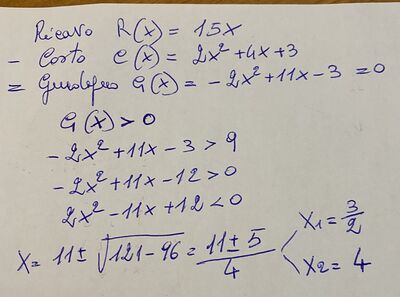 Ricavo R(x) = 15x
- Costo C(x) = 2x² + 4x + 3
= Guadagno G(x) = - 2x² + 11x - 3 = 0
G(x) > 0
- 2x² + 11x - 3 > 9
- 2x² + 11x - 12 > 0
2x² - 11x + 12 < 0
x = 11 ± √121 - 96 = 11 ± 5 / 4
x1 = 3/2
x2 = 4